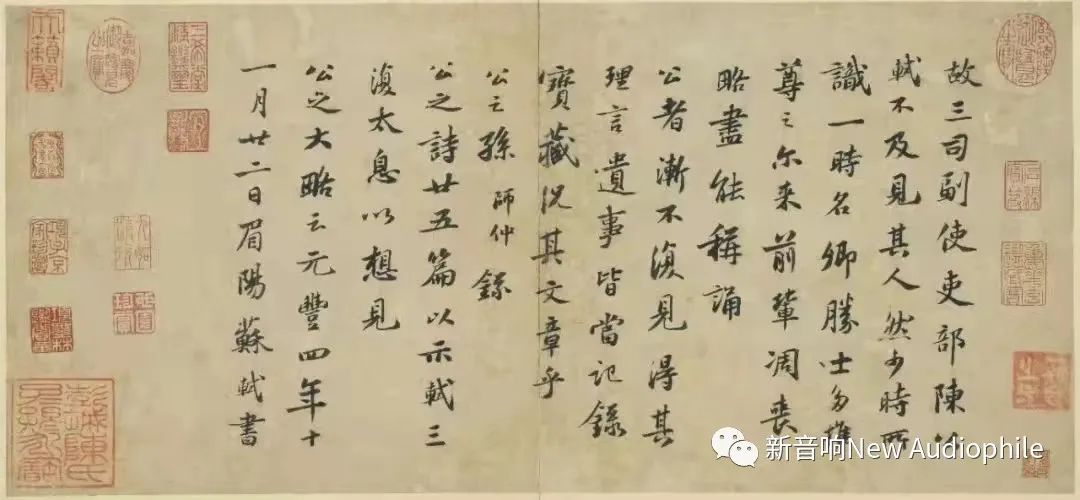 故三司副使吏部陳公
軾不及見其人然少時所
識一時名卿勝士多推
尊之尓来前輩凋喪
略盡能稱誦
公者漸不復見得其
理言遺事皆當記錄
寶藏況其文章乎
公之孫師仲錄
公之詩廿五篇以示軾三
復太息以想見
公之大略云元豐四年十
一月廿二日眉陽蘇軾書
新音响New Audiophile